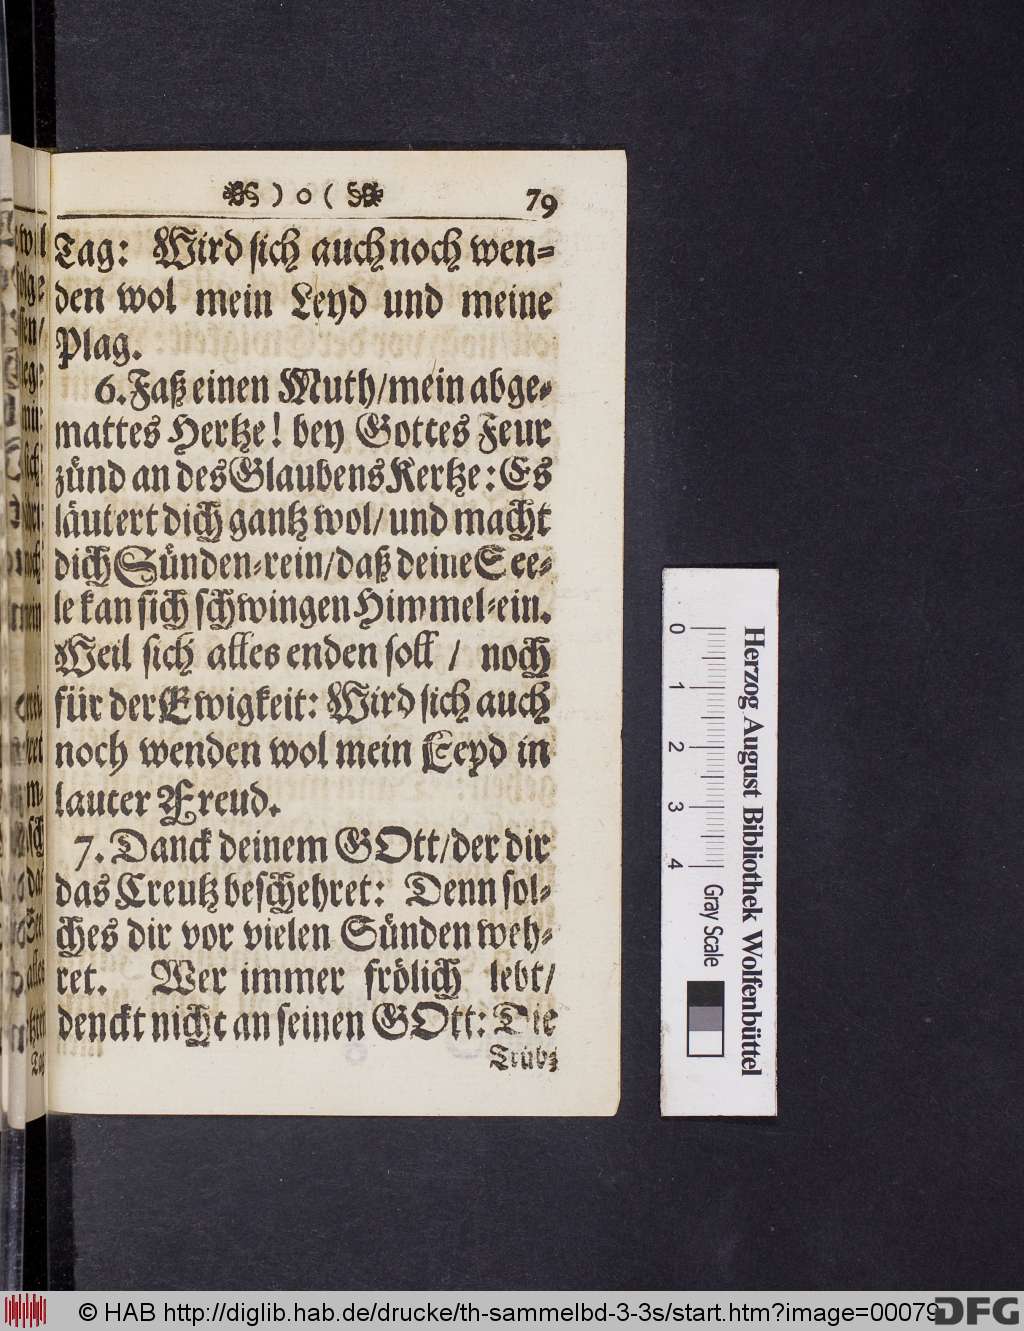 ) o ( 79
Tag: Wird sich auch noch wen=
den wol mein Leyd und meine
Plag.
6. Faß einen Muth/mein abge=
mattes Hertze! bey Gottes Feur
zünd an des Glaubens Kertze: Es
läutert dich gantz wol/ und macht
dich Sünden=rein/daß deine See=
le kan sich schwingen Himmel=ein.
Weil sich alles enden soll / noch
für der Ewigkeit: Wird sich auch
noch wenden wol mein Leyd in
lauter Freud.
7. Danck deinem GOtt/der dir
das Creutz beschehret: Denn sol=
ches dir vor vielen Sünden weh=
ret. Wer immer frölich lebt/
denckt nicht an seinen GOtt: Die
Trüb=
0 1 2 3 4 Gray Scale
Herzog August Bibliothek Wolfenbüttel
© HAB http://diglib.hab.de/drucke/th-sammelbd-3-3s/start.htm?image=00079
DFG